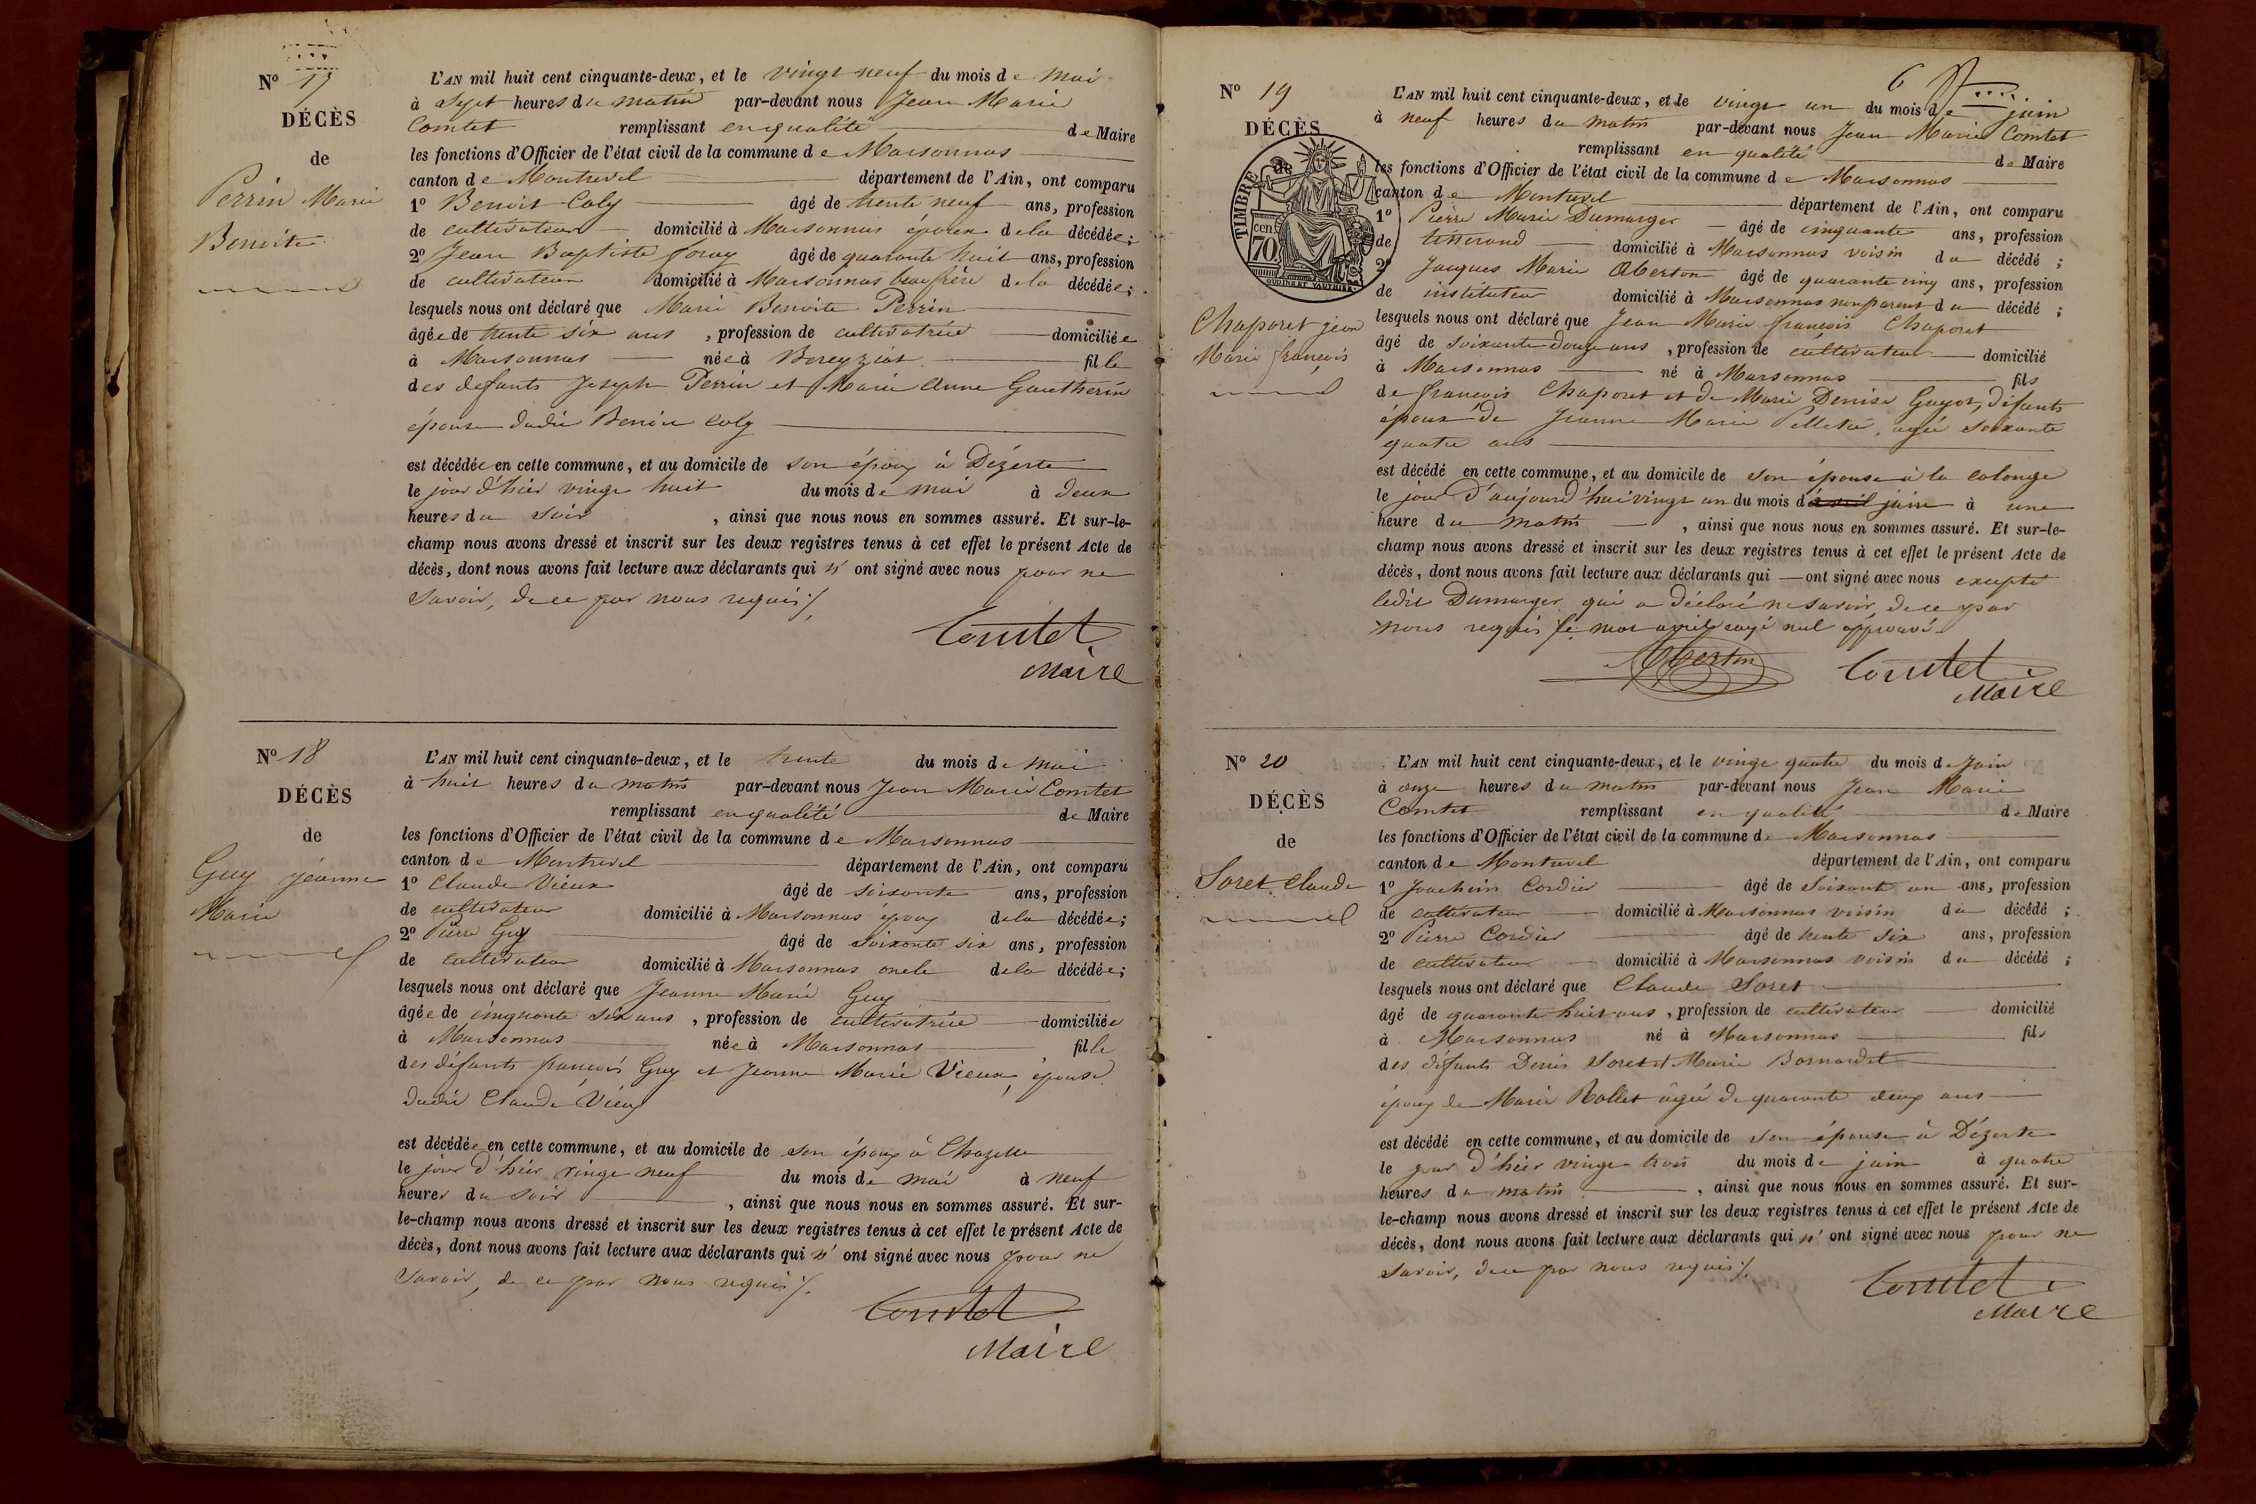 Nº 17
DÉCÈS
de
Perrin Marie
Benoite
L'AN mil huit cent cinquante-deux, et le vingt neuf du mois de mai
à Sept heures du matin par-devant nous Jean Marie
Comtet remplissant en qualité de Maire
les fonctions d'Officier de l'état civil de la commune de Marsonnas
canton de Montrevel département de l'Ain, ont comparu
1º Benoit Coly âgé de trente neuf ans, profession
de cultivateur domicilié à Marsonnas époux de la décédée;
2º Jean Baptiste âgé de quarante huit ans, profession
de cultivateur domicilié à Marsonnas beaufrère de la décédée;
lesquels nous ont déclaré que Marie Benoite Perrin
âgée de trente six ans, profession de cultivatrice domiciliée
à Marsonnas née à Bereyziat fille
des défunts Joseph Perrin et Marie Anne Gautherin
épouse dudit Benoit Coly
est décédée en cette commune, et au domicile de son époux à Dézerte
le jour d'hier vingt huit du mois de mai à deux
heures du soir, ainsi que nous nous en sommes assuré. Et sur-le-
champ nous avons dressé et inscrit sur les deux registres tenus à cet effet le présent Acte de
décès, dont nous avons fait lecture aux déclarants qui n'ont signé avec nous pour ne
savoir, de ce par nous requis /.
Comtet
Maire
Nº 18
DÉCÈS
de
Guy jeanne
Marie
L'AN mil huit cent cinquante-deux, et le trente du mois de mai
à huit heures du matin par-devant nous Jean Marie Comtet
remplissant en qualité de Maire
les fonctions d'Officier de l'état civil de la commune de Marsonnas
canton de Montrevel département de l'Ain, ont comparu
1º Claude Vieux âgé de soixante ans, profession
de cultivateur domicilié à Marsonnas époux de la décédée;
2º Pierre Guy âgé de soixante six ans, profession
de cultivateur domicilié à Marsonnas oncle de la décédée;
lesquels nous ont déclaré que Jeanne Marie Guy
âgée de cinquante six ans, profession de cultivatrice domiciliée
à Marsonnas née à Marsonnas fille
des défunts françois Guy et Jeanne Marie Vieux, épouse
dudit Claude Vieux
est décédée en cette commune, et au domicile de son époux à Chazelle
le jour d'hier vingt neuf du mois de mai à neuf
heures du soir, ainsi que nous nous en sommes assuré. Et sur-
le-champ nous avons dressé et inscrit sur les deux registres tenus à cet effet le présent Acte de
décès, dont nous avons fait lecture aux déclarants qui n'ont signé avec nous pour ne
savoir, de ce par nous requis /.
Comtet
Maire
6
Nº 19
DÉCÈS
de
TIMBRE
70 cen
OUDINÉ ET VAUTHIER
Chaporet jean
Marie françois
L'AN mil huit cent cinquante-deux, et le vingt un du mois de juin
à neuf heures du matin par-devant nous Jean Marie Comtet
remplissant en qualité de Maire
les fonctions d'Officier de l'état civil de la commune de Marsonnas
canton de Montrevel département de l'Ain, ont comparu
1º Pierre Marie Dumarger âgé de cinquante ans, profession
de tisserand domicilié à Marsonnas voisin du décédé;
2º Jacques Marie Aberton âgé de quarante cinq ans, profession
de instituteur domicilié à Marsonnas non parent du décédé;
lesquels nous ont déclaré que Jean Marie françois Chaporet
âgé de soixante douze ans, profession de cultivateur domicilié
à Marsonnas né à Marsonnas fils
de françois Chaporet et de Marie Denise Guyot, défunts
époux de Jeanne Marie agée soixante
quatre ans
est décédé en cette commune, et au domicile de son épouse à la colonge
le jour d'aujourd'hui vingt un du mois d'avril juin à une
heure du matin, ainsi que nous nous en sommes assuré. Et sur-le-
champ nous avons dressé et inscrit sur les deux registres tenus à cet effet le présent Acte de
décès, dont nous avons fait lecture aux déclarants qui ont signé avec nous excepté
ledit Dumarger qui a déclaré ne savoir, de ce par
nous requis le mot avril rayé nul approuvé
Aberton Comtet
Maire
Nº 20
DÉCÈS
de
Soret Claude
L'AN mil huit cent cinquante-deux, et le vingt quatre du mois de Juin
à onze heures du matin par-devant nous Jean Marie
Comtet remplissant en qualité de Maire
les fonctions d'Officier de l'état civil de la commune de Marsonnas
canton de Montrevel département de l'Ain, ont comparu
1º Joachim Cordier âgé de soixante un ans, profession
de cultivateur domicilié à Marsonnas voisin du décédé;
2º Pierre Cordier âgé de trente six ans, profession
de cultivateur domicilié à Marsonnas voisin du décédé;
lesquels nous ont déclaré que Claude Soret
âgé de quarante huit ans, profession de cultivateur domicilié
à Marsonnas né à Marsonnas fils
des défunts Denis Soret et Marie Bornardet
époux de Marie Rollet âgée de quarante deux ans
est décédé en cette commune, et au domicile de son épouse à Dézerte
le jour d'hier vingt trois du mois de juin à quatre
heures du matin, ainsi que nous nous en sommes assuré. Et sur-
le-champ nous avons dressé et inscrit sur les deux registres tenus à cet effet le présent Acte de
décès, dont nous avons fait lecture aux déclarants qui n'ont signé avec nous pour ne
savoir, de ce par nous requis /.
Comtet
Maire